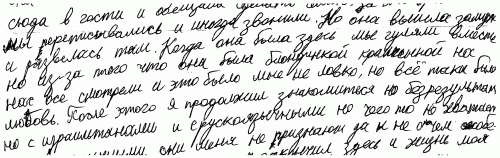 сюда в гости и обещала сделать
мы переписывались и иногда звонили. Но она вышла замуж
и развелась там. Когда она была здесь мы гуляли вместе
но из-за того что она была блондинкой крашенной на
нас все смотрели и это было мне не ловко, но всё таки была
любовь. После этого я продолжил знакомиться но безрезультатно
но с израильтянами и с русскоязычными но чего то не хватает
они меня не признают да и не о чем
здесь и жизнь моя